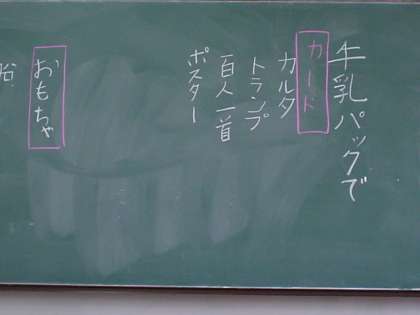 牛乳パックで
カード
カルタ
トランプ
百人一首
ポスター
おもちゃ